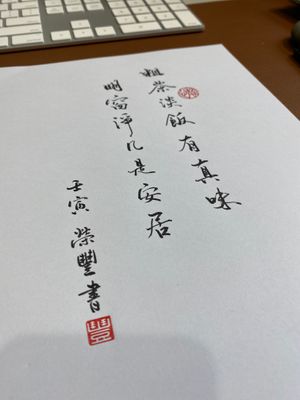 粗茶淡飯有真味
明窗淨几是安居
壬寅 榮豐書